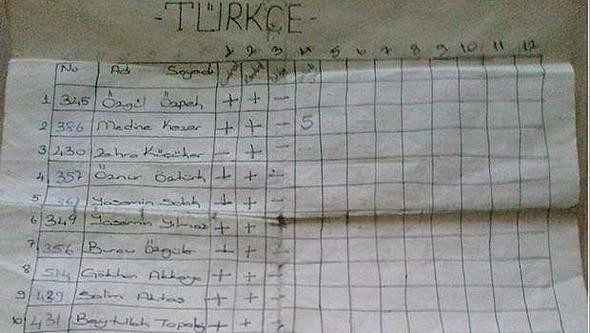 -TÜRKÇE-
1 2 3 4 5 6 7 8 9 10 11 12
No Adı Soyadı
1 345 Özgül Özpek + + -
2 386 Medine Keser + + - 5
3 430 Zehra Küçüker - + -
4 357 Öznur Öztürk + + -
5 Yasemin + + -
6 349 Yasemin Yılmaz + + -
7 356 Burcu Özgül + + -
8 514 Gökhan Akkaya + + -
9 429 Selim Aktaş + + -
10 431 Beytullah + + -